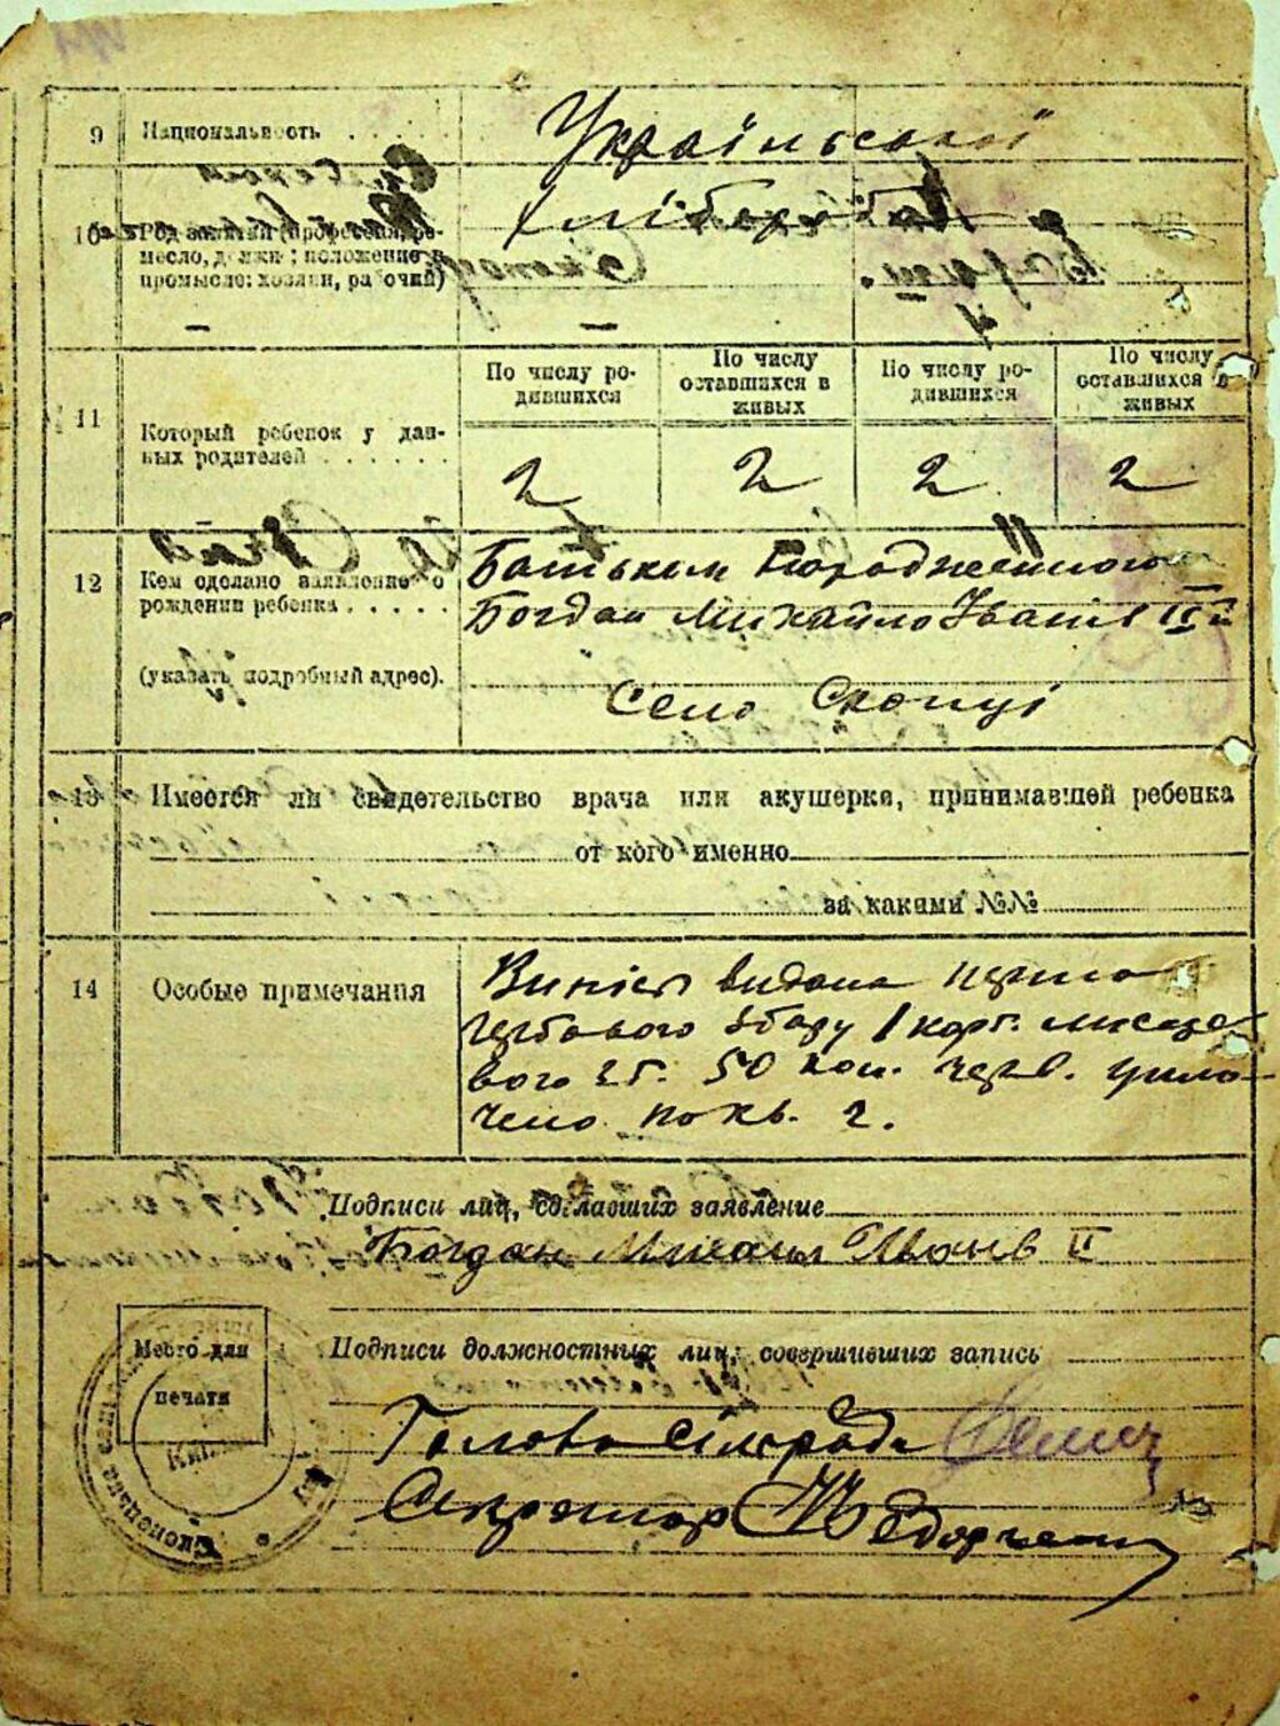 9 Национальность
Української
хлібороба
10 Род занятий (профессия, ре-
месло, должн.; положение в
промысле: хозяин, рабочий)
— —
11 Который ребенок у дан-
ных родителей
По числу ро-
дившихся
По числу
оставшихся в
живых
По числу ро-
дившихся
По числу
оставшихся в
живых
2 2 2 2
12 Кем сделано заявление о
рождении ребенка
(указать подробный адрес).
Батьком
Богдан Михайло Іванів ІІй
Село Скопці
13 Имеется ли свидетельство врача или акушерки, принимавшей ребенка
от кого именно
за какими №№
14 Особые примечания
видана
гербового збору 1 карб.
вого 25 г. 50 коп. черв. упла-
чено по кв. 2.
Подписи лиц, сделавших заявление
Богдан Михаил Иванів ІІ
Место для
печати
Подписи должностных лиц, совершивших запись
Голова сільради
Секретар